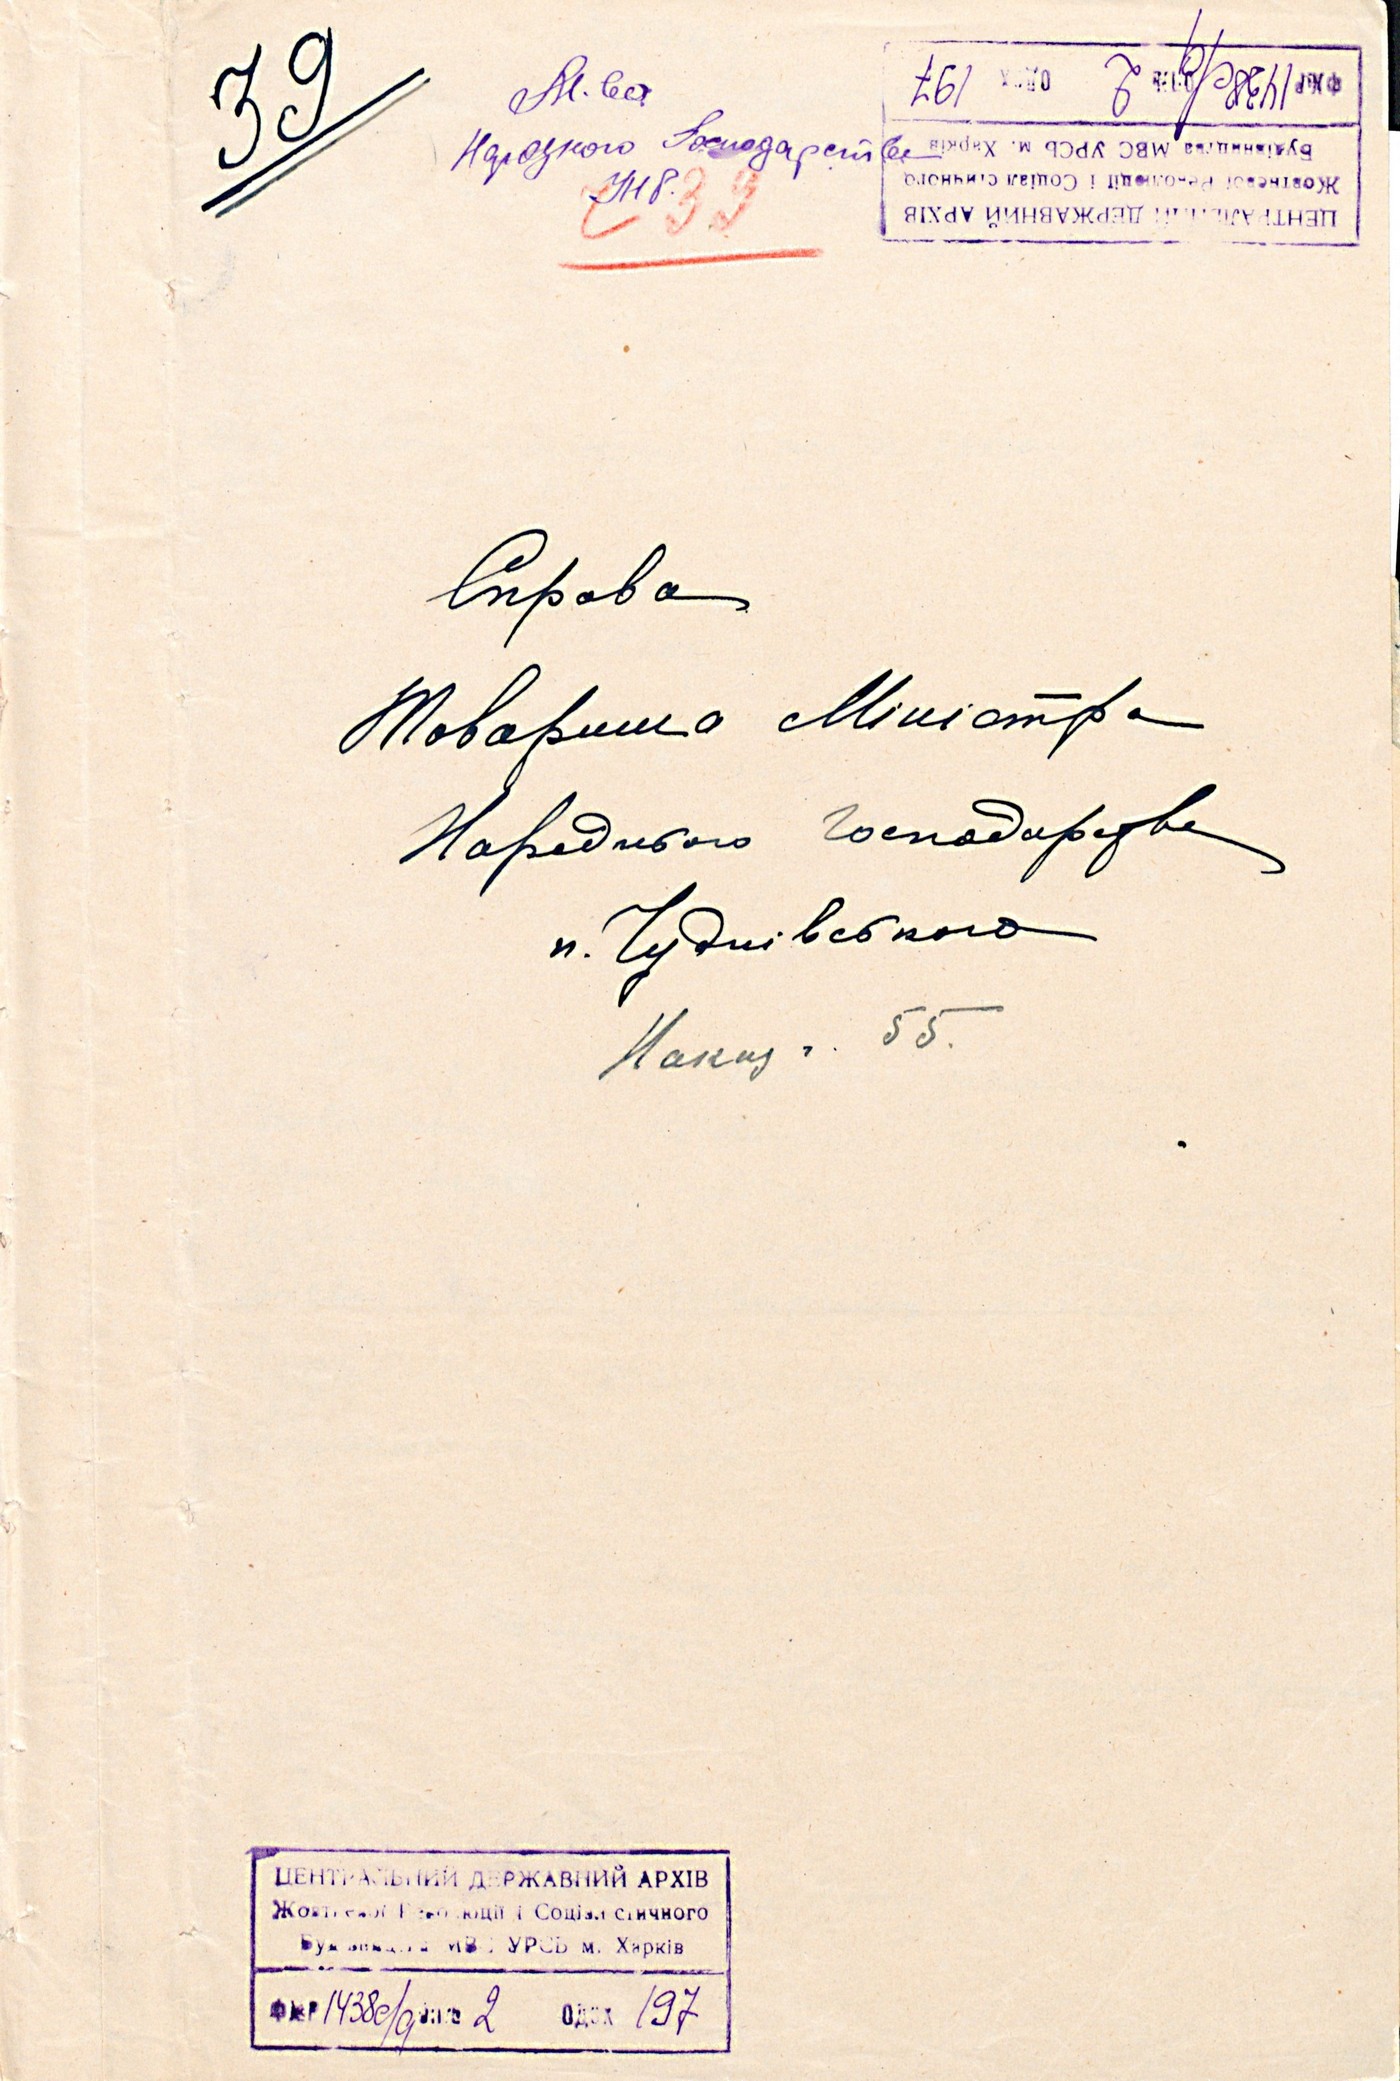 39
М-ва
Народного Господарства
УНР.
39
ЦЕНТРАЛЬНИЙ ДЕРЖАВНИЙ АРХІВ
Жовтневої Революції і Соціалістичного
Будівництва МВС УРСР м. Харків
ФКР 1438с/9 опис 2 ОДЗХ 197
Справа
Товариша Міністра
Народнього Господарства
п. Чуднівського
Наказ ч. 55.
ЦЕНТРАЛЬНИЙ ДЕРЖАВНИЙ АРХІВ
Жовтневої Революції і Соціалістичного
Будівництва МВС УРСР м. Харків
1438с/9 2 197